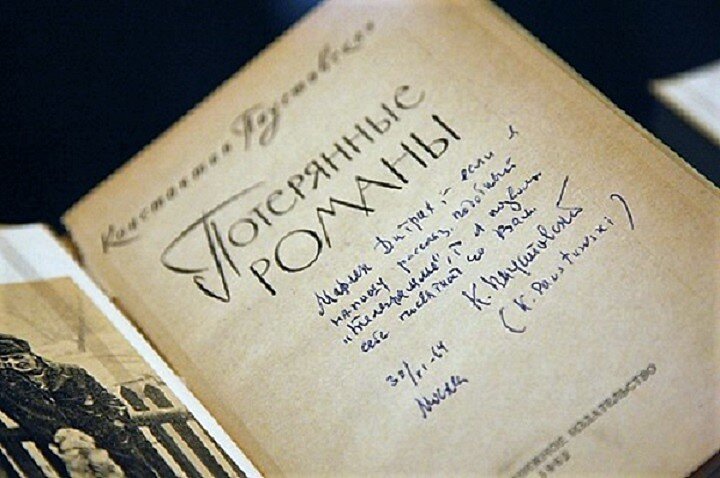 Константин Паустовский
ПОТЕРЯННЫЕ
РОМАНЫ
Марлен Дитрих, если я
напишу рассказ, подобный
"Телеграмме", то я позволю
себе посвятить его Вам.
К. Паустовский
(K. Paustowski)
Москва
ИЗДАТЕЛЬСТВО